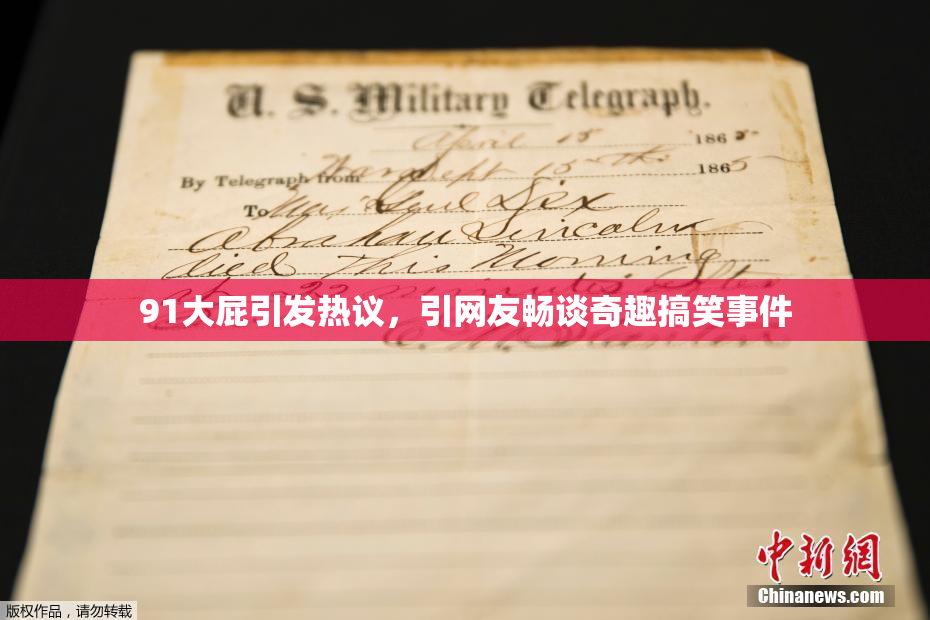 U. S. Military Telegraph.
April 15 1865
By Telegraph from War Dept 15th 1865
To Maj Genl Dix
Abraham Lincoln
died This Morning
at 22 minutes after
91大屁引发热议，引网友畅谈奇趣搞笑事件
中新网
Chinanews.com
版权作品，请勿转载